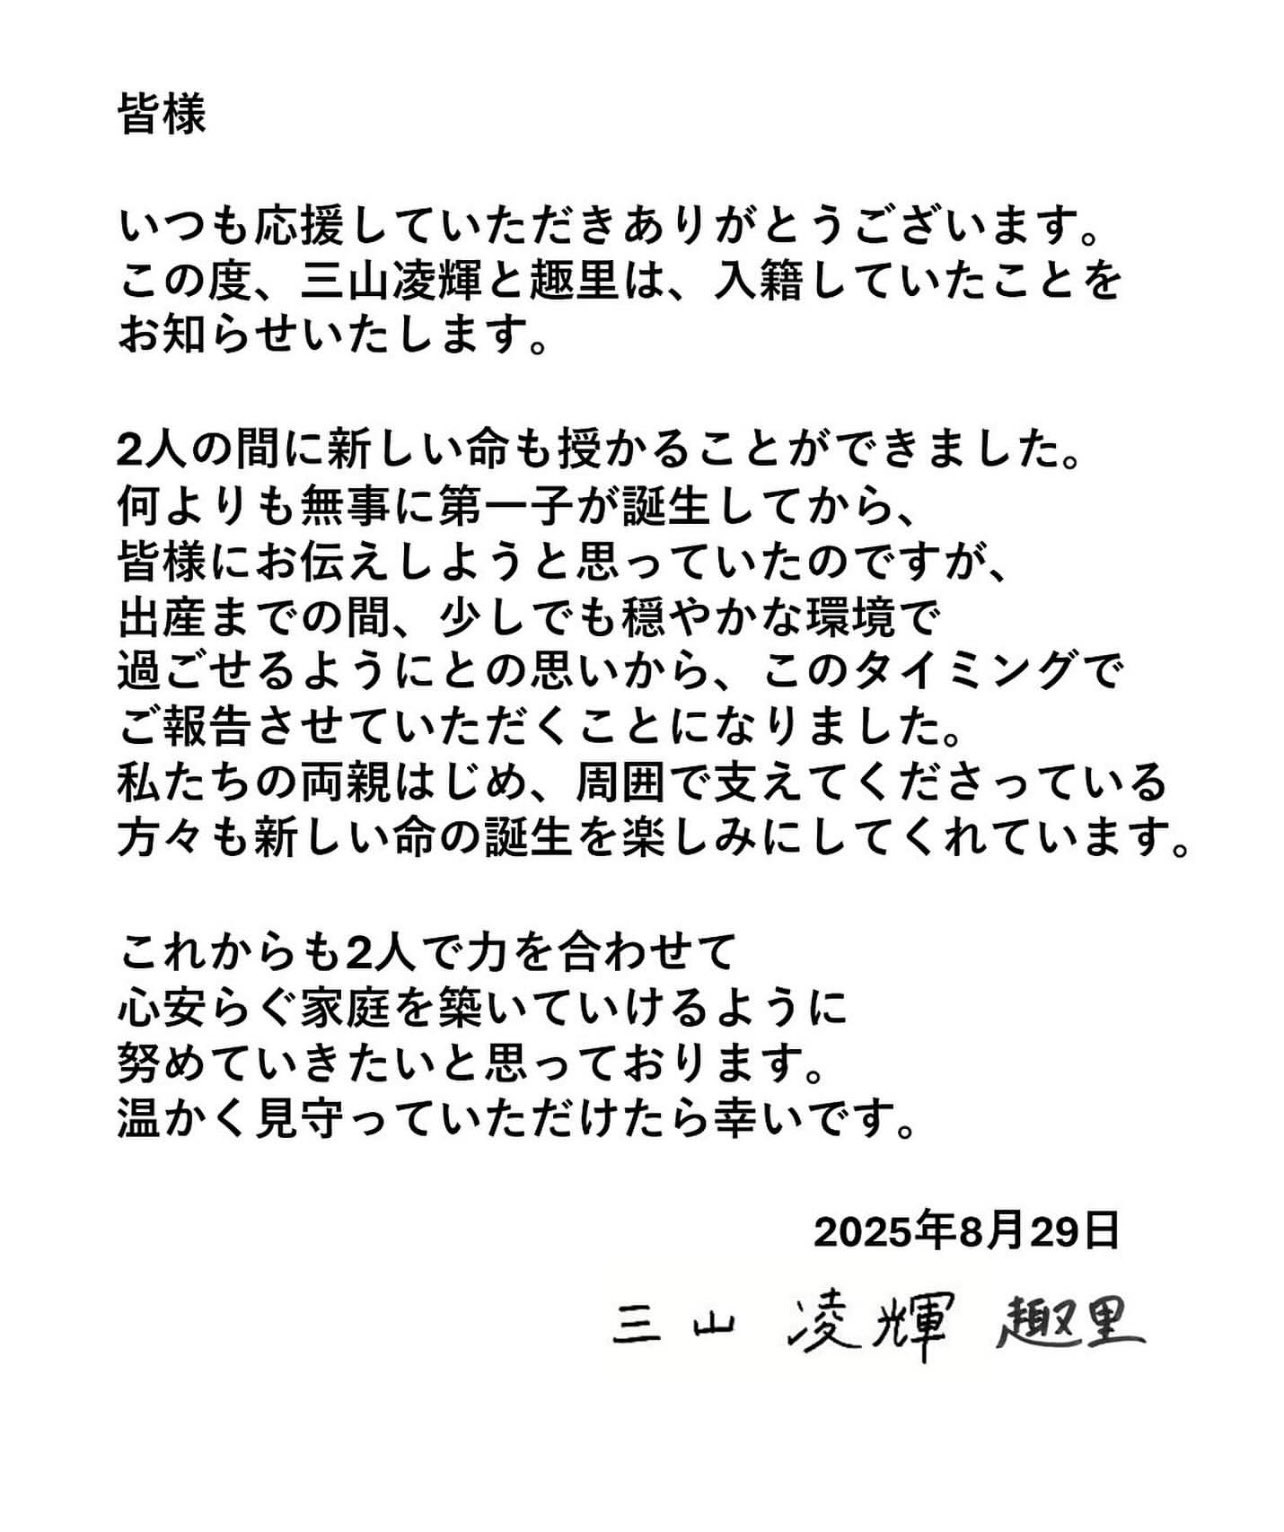 皆様
いつも応援していただきありがとうございます。
この度、三山凌輝と趣里は、入籍していたことを
お知らせいたします。
2人の間に新しい命も授かることができました。
何よりも無事に第一子が誕生してから、
皆様にお伝えしようと思っていたのですが、
出産までの間、少しでも穏やかな環境で
過ごせるようにとの思いから、このタイミングで
ご報告させていただくことになりました。
私たちの両親はじめ、周囲で支えてくださっている
方々も新しい命の誕生を楽しみにしてくれています。
これからも2人で力を合わせて
心安らぐ家庭を築いていけるように
努めていきたいと思っております。
温かく見守っていただけたら幸いです。
2025年8月29日
三山 凌輝 趣里